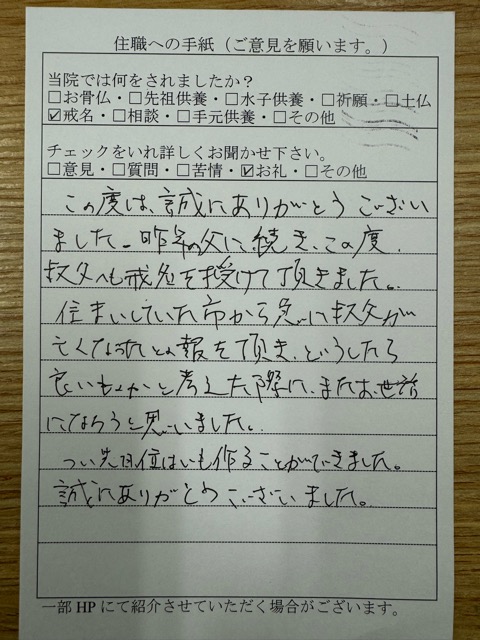 住職への手紙（ご意見を願います。）
当院では何をされましたか？
□お骨仏・□先祖供養・□水子供養・□祈願・□土仏
☑戒名・□相談・□手元供養・□その他
チェックをいれ詳しくお聞かせ下さい。
□意見・□質問・□苦情・☑お礼・□その他
この度は、誠にありがとうござい
ました。昨年の父に続き、この度、
叔父へも戒名を授けて頂きました。
住まいしていた市から急に叔父が
亡くなったとの報を頂き、どうしたら
良いものかと考えた際に、またお世話
になろうと思いました。
つい先日位はいも作ることができました。
誠にありがとうございました。
一部 HP にて紹介させていただく場合がございます。